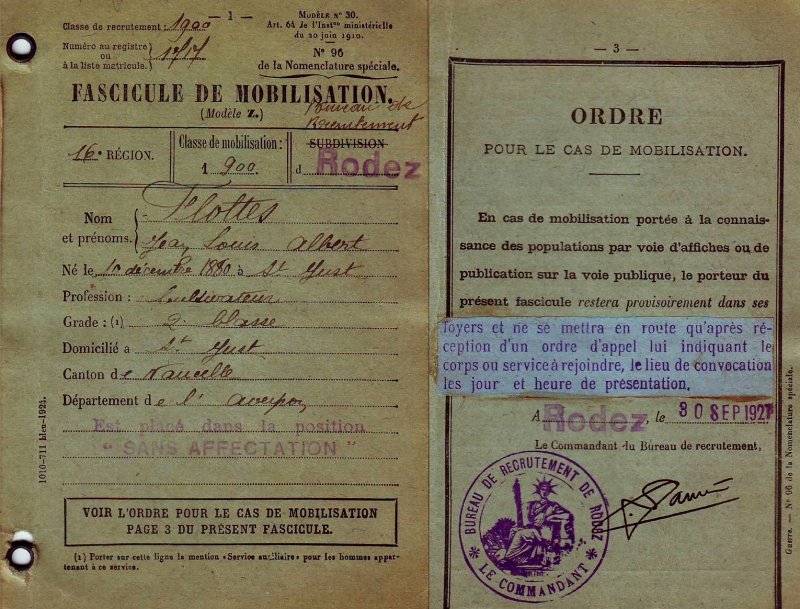 — 1 —
Classe de recrutement : 1900
Numéro au registre
ou
à la liste matricule.
MODÈLE N° 30.
Art. 64 de l'Inston ministérielle
du 20 juin 1910.
N° 96
de la Nomenclature spéciale.
FASCICULE DE MOBILISATION.
(Modèle Z.)
Bureau de
Recrutement
16e RÉGION.
Classe de mobilisation :
1 900
SUBDIVISION
d Rodez
Nom
et prénoms.
Flottes
Jean Louis Albert
Né le 10 décembre 1880 à St Just
Profession : Cultivateur
Grade : (1) 2e Classe
Domicilié a St Just
Canton de Naucelle
Département de l'Aveyron
Est placé dans la position
"SANS AFFECTATION"
VOIR L'ORDRE POUR LE CAS DE MOBILISATION
PAGE 3 DU PRÉSENT FASCICULE.
(1) Porter sur cette ligne la mention « Service auxiliaire » pour les hommes appar-
tenant à ce service.
1010-711 bleu-1924.
— 3 —
ORDRE
POUR LE CAS DE MOBILISATION.
En cas de mobilisation portée à la connais-
sance des populations par voie d'affiches ou de
publication sur la voie publique, le porteur du
présent fascicule restera provisoirement dans ses
foyers et ne se mettra en route qu'après ré-
ception d'un ordre d'appel lui indiquant le
corps ou service à rejoindre, le lieu de convocation
les jour et heure de présentation.
A Rodez, le 30 SEP 1927
Le Commandant du Bureau de recrutement,
BUREAU DE RECRUTEMENT DE RODEZ
* LE COMMANDANT *
Guerre. — N° 96 de la Nomenclature spéciale.